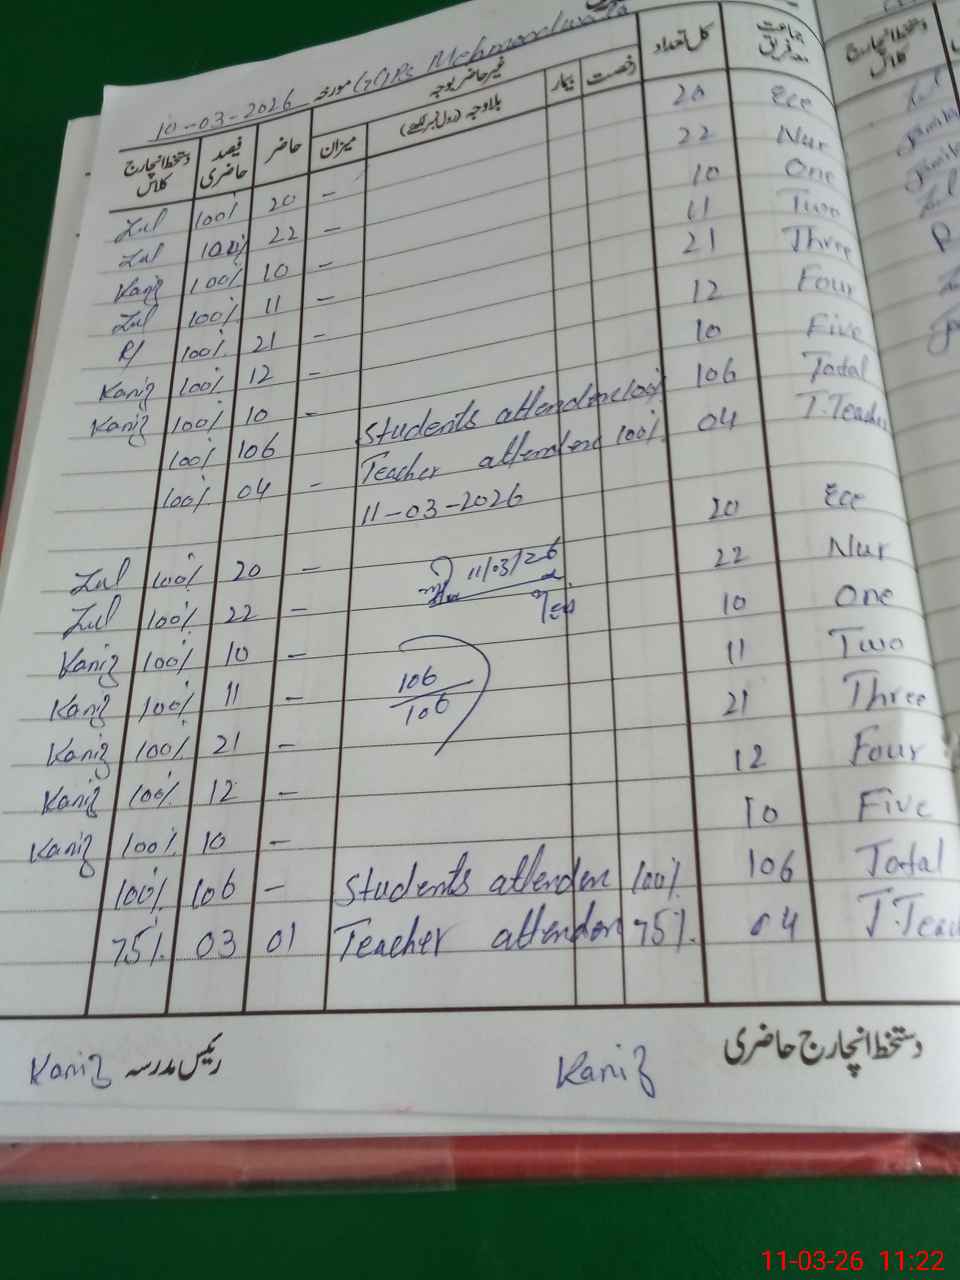 10-03-2026 مورخہ Ps Mehmoodwala
جماعت معہ فریق کل تعداد رخصت بیمار غیر حاضر بوجہ بلاوجہ (رول نمبر لکھیے) میزان حاضر فیصد حاضری دستخط انچارج کلاس
Ece 20 - 20 100% Zul
Nur 22 - 22 100% Zul
One 10 - 10 100% Kaniz
Two 11 - 11 100% Zul
Three 21 - 21 100%
Four 12 - 12 100% Kaniz
Five 10 - 10 100% Kaniz
Total 106 Students attendence 100% 106 100%
T.Teacher 04 Teacher attenden 100% - 04 100%
11-03-2026
Ece 20 - 20 100% Zul
Nur 22 11/03/26 - 22 100% Zul
One 10 - 10 100% Kaniz
Two 11 106/106 - 11 100% Kaniz
Three 21 - 21 100% Kaniz
Four 12 - 12 100% Kaniz
Five 10 - 10 100% Kaniz
Total 106 100% Students attenden - 106 100%
T.Teac 04 75% Teacher attenden 01 03 75%
دستخط انچارج حاضری Kaniz رئیس مدرسہ Kaniz
11-03-26 11:22